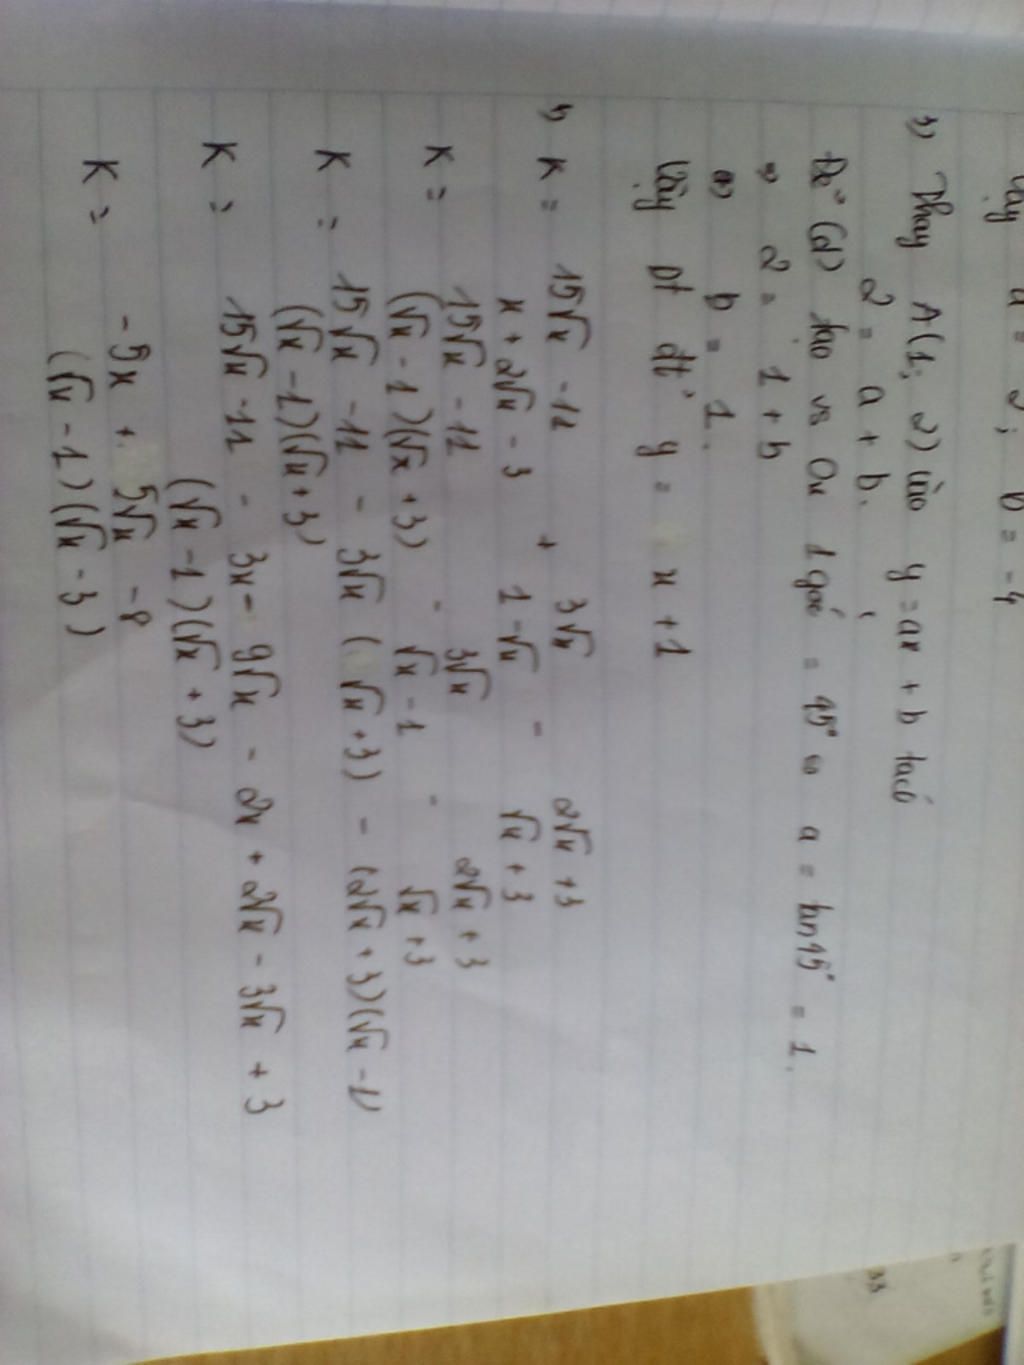 Vậy a = 2; b = -4
3) Thay A(1; 2) vào y = ax + b ta có
2 = a + b.
Để (d) tạo vs Ox 1 góc = 45° ⇔ a = tan45° = 1.
⇒ 2 = 1 + b
⇔ b = 1.
Vậy pt đt: y = x + 1
K = (15√x - 11)/(x + 2√x - 3) + 3√x/(1 - √x) - (2√x + 3)/(√x + 3)
K = (15√x - 11)/((√x - 1)(√x + 3)) - 3√x/(√x - 1) - (2√x + 3)/(√x + 3)
K = (15√x - 11 - 3√x(√x + 3) - (2√x + 3)(√x - 1))/((√x - 1)(√x + 3))
K = (15√x - 11 - 3x - 9√x - 2x + 2√x - 3√x + 3)/((√x - 1)(√x + 3))
K = (-5x + 5√x - 8)/((√x - 1)(√x - 3))
33